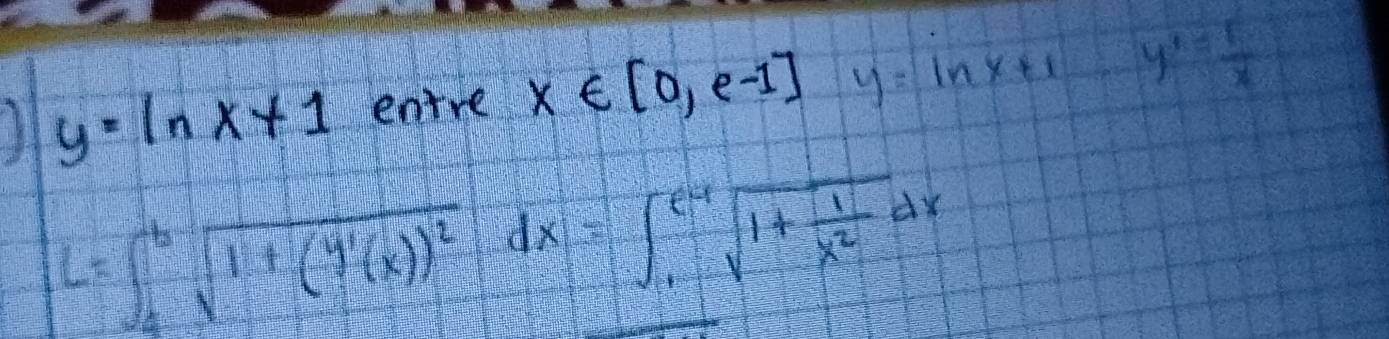 ) y = ln x + 1 entre x ∈ [0, e-1] y = ln x + 1 y' = 1/x
L = ∫ₐᵇ √(1 + (y'(x))²) dx = ∫₁ᵉ⁻¹ √(1 + 1/x²) dx